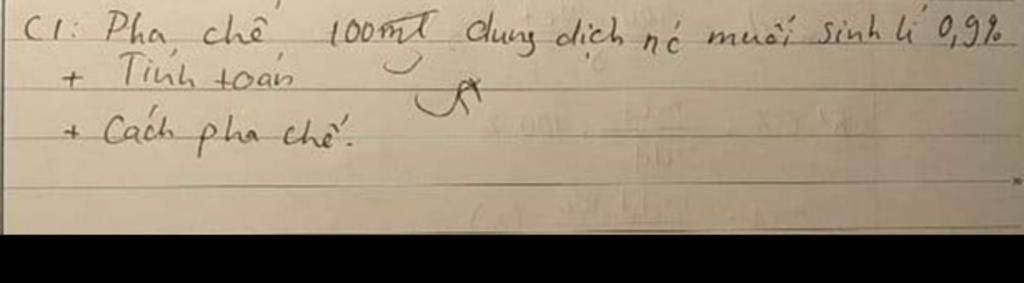 C1: Pha chế 100ml dung dịch nć muối sinh lí 0,9%
+ Tính toán
+ Cách pha chế.